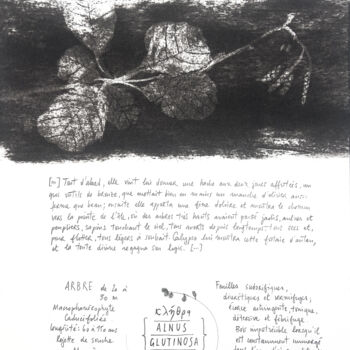 [...] Tout d'abord, elle vint lui donner une hache aux deux joues affûtées, un
gros outil de bronze, que mettait bien en mains un manche d'olivier aussi
ferme que beau; ensuite elle apporta une fine doloire et montra le chemin
vers la pointe de l'île, où des arbres très hauts avaient poussé jadis, aulnes et
peupliers, sapins touchant le ciel, tous morts depuis longtemps, tous secs et,
pour flotter, tous légers à souhait. Calypso lui montra cette futaie d'antan,
et la toute divine regagna son logis. [...]
ARBRE de 20 à
30 m
Macrophanérophyte
Caducifoliée
longévité: 60 à 110 ans
rejette de souche
κλήθρα
ALNUS
GLUTINOSA
Feuilles subsessifiques,
diurétiques et vermifuges,
écorce astringente, tonique,
détersive et fébrifuge.
Bois imputrescible lorsqu'il
est constamment immergé